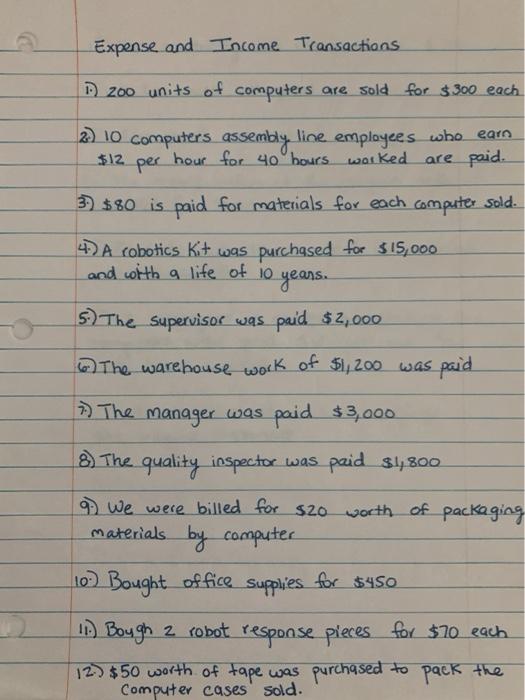 Expense and Income Transactions
1.) 200 units of computers are sold for $300 each
2.) 10 computers assembly line employees who earn
$12 per hour for 40 hours worked are paid.
3.) $80 is paid for materials for each computer sold.
4.) A robotics Kit was purchased for $15,000
and with a life of 10 years.
5.) The supervisor was paid $2,000
6.) The warehouse work of $1,200 was paid
7.) The manager was paid $3,000
8.) The quality inspector was paid $1,800
9.) We were billed for $20 worth of packaging
materials by computer
10.) Bought office supplies for $450
11.) Bough 2 robot response pieces for $70 each
12.) $50 worth of tape was purchased to pack the
Computer cases sold.